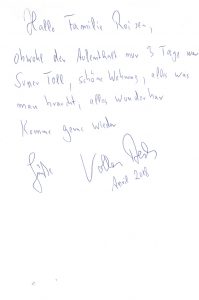 Hallo Familie Reisen,
obwohl der Aufenthalt nur 3 Tage war
Super Toll, schöne Wohnung, alles was
man braucht, alles wunderbar
Komme gerne wieder
Grüße Volker
April 2018